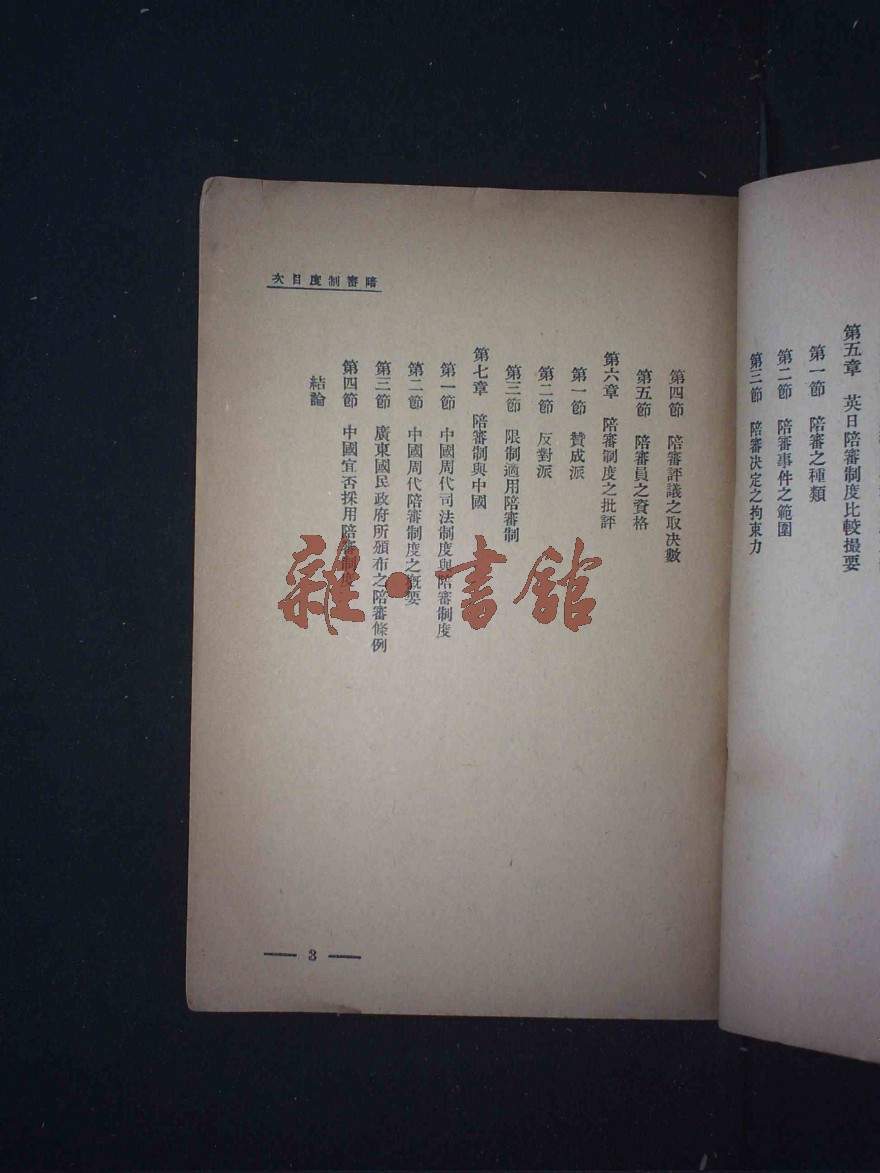 第五章　英日陪審制度比較撮要
第一節　陪審之種類
第二節　陪審事件之範圍
第三節　陪審決定之拘束力
陪審制度目次
第四節　陪審評議之取決數
第五節　陪審員之資格
第六章　陪審制度之批評
第一節　贊成派
第二節　反對派
第三節　限制適用陪審制
第七章　陪審制與中國
第一節　中國周代司法制度與陪審制度
第二節　中國周代陪審制度之概要
第三節　廣東國民政府所頒布之陪審條例
第四節　中國宜否採用陪審制度
結論
3
雜·書館